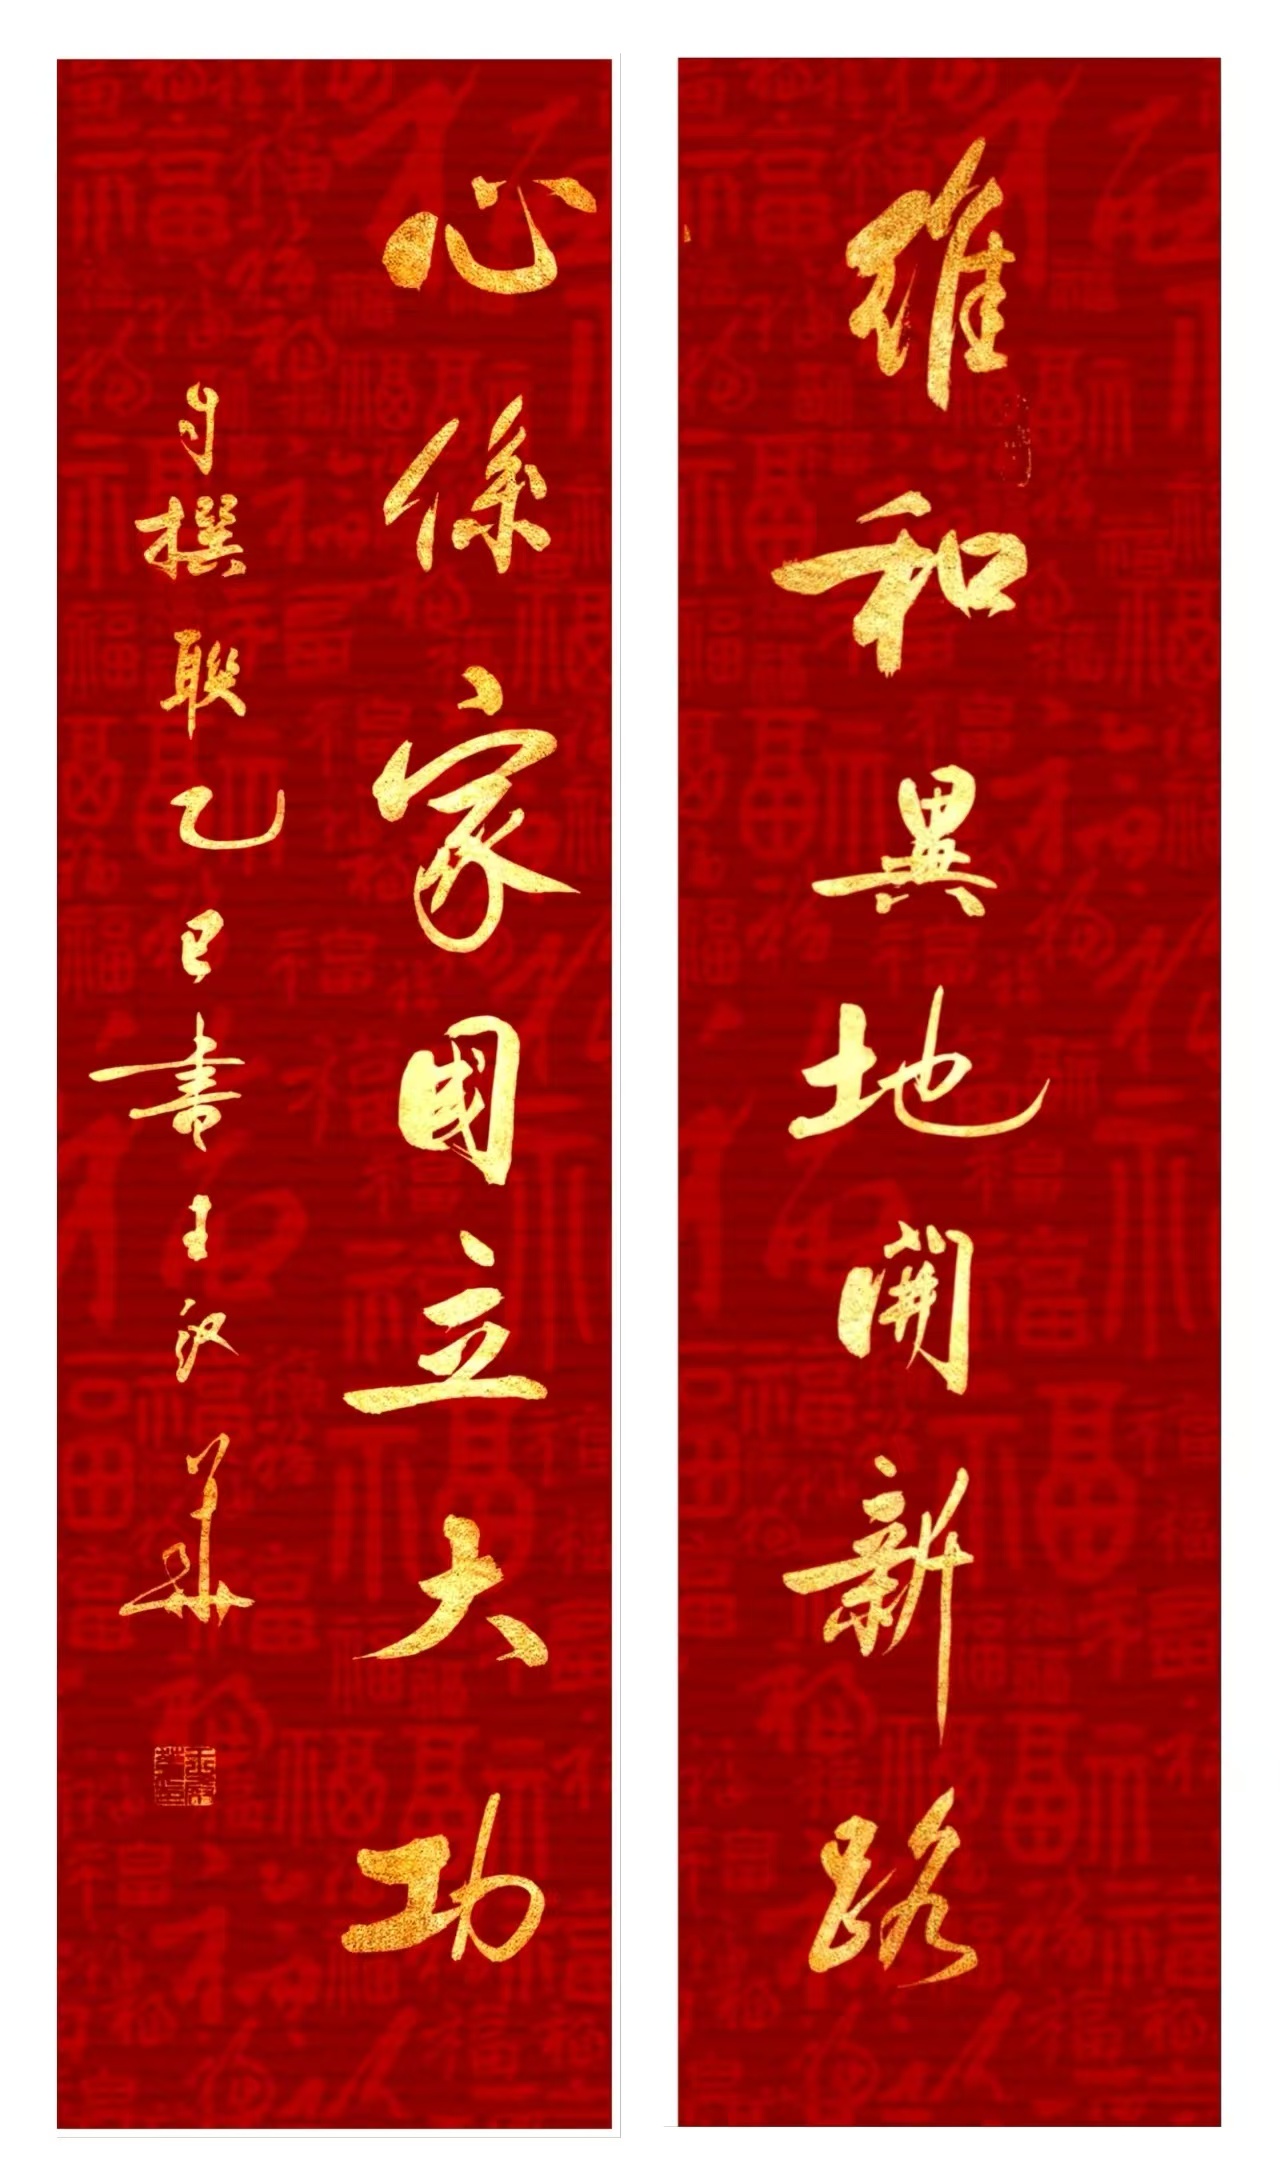 維和異地開新路
心係家國立大功
自撰聯乙巳書王汉華